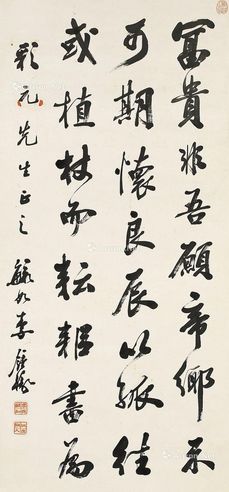 富貴非吾願帝鄉不
可期懷良辰以孤往
或植杖而耘耔書為
彩元先生正之 毓如李鍾豫